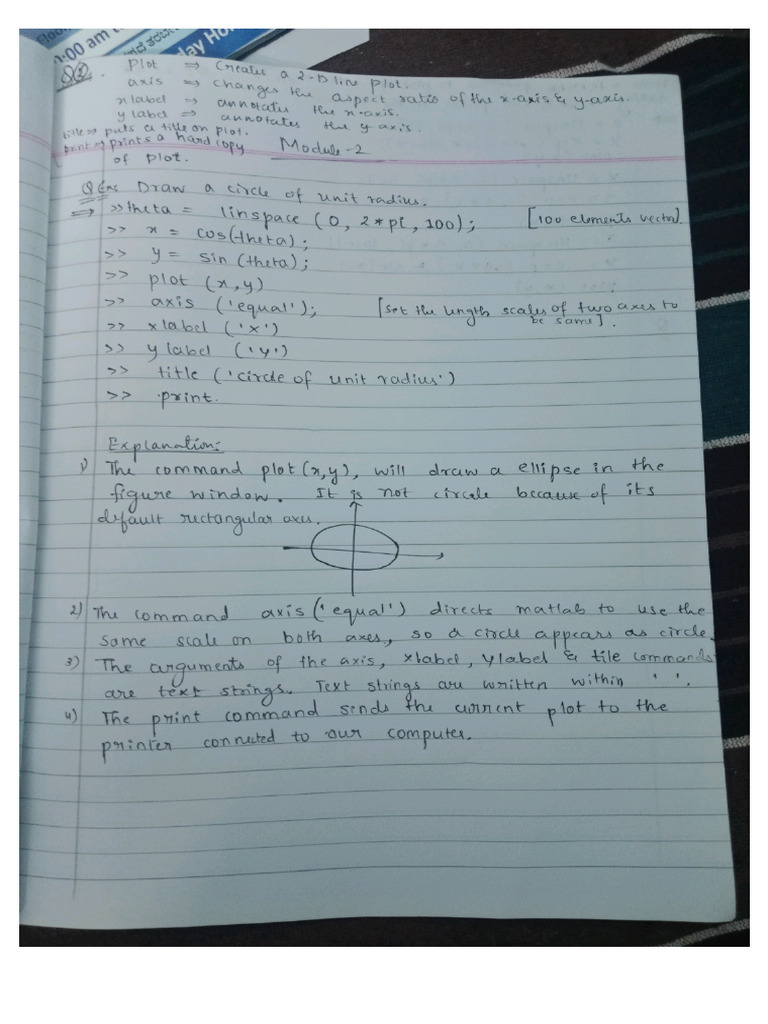 1:00 am
day Ho
Q2. Plot ⇒ Creates a 2-D line plot.
axis ⇒ changes the aspect ratio of the x-axis & y-axis.
xlabel ⇒ annotates the x-axis.
ylabel ⇒ annotates the y-axis.
title ⇒ puts a title on plot.
print ⇒ prints a hard copy
of plot.
Module-2
Q Ex: Draw a circle of unit radius.
⇒ >> theta = linspace (0, 2*pi, 100); [100 elements vector].
>> x = cos(theta);
>> y = sin (theta);
>> plot (x,y)
>> axis ('equal'); [set the length scales of two axes to
be same].
>> xlabel ('x')
>> ylabel ('y')
>> title ('circle of unit radius')
>> print.
Explanation:
1) The command plot (x,y), will draw a ellipse in the
figure window. It is not circle because of its
default rectangular axes.
2) The command axis ('equal') directs matlab to use the
same scale on both axes, so a circle appears as circle.
3) The arguments of the axis, xlabel, ylabel & tile commands
are text strings. Text strings are written within ' '.
4) The print command sends the current plot to the
printer connected to our computer.